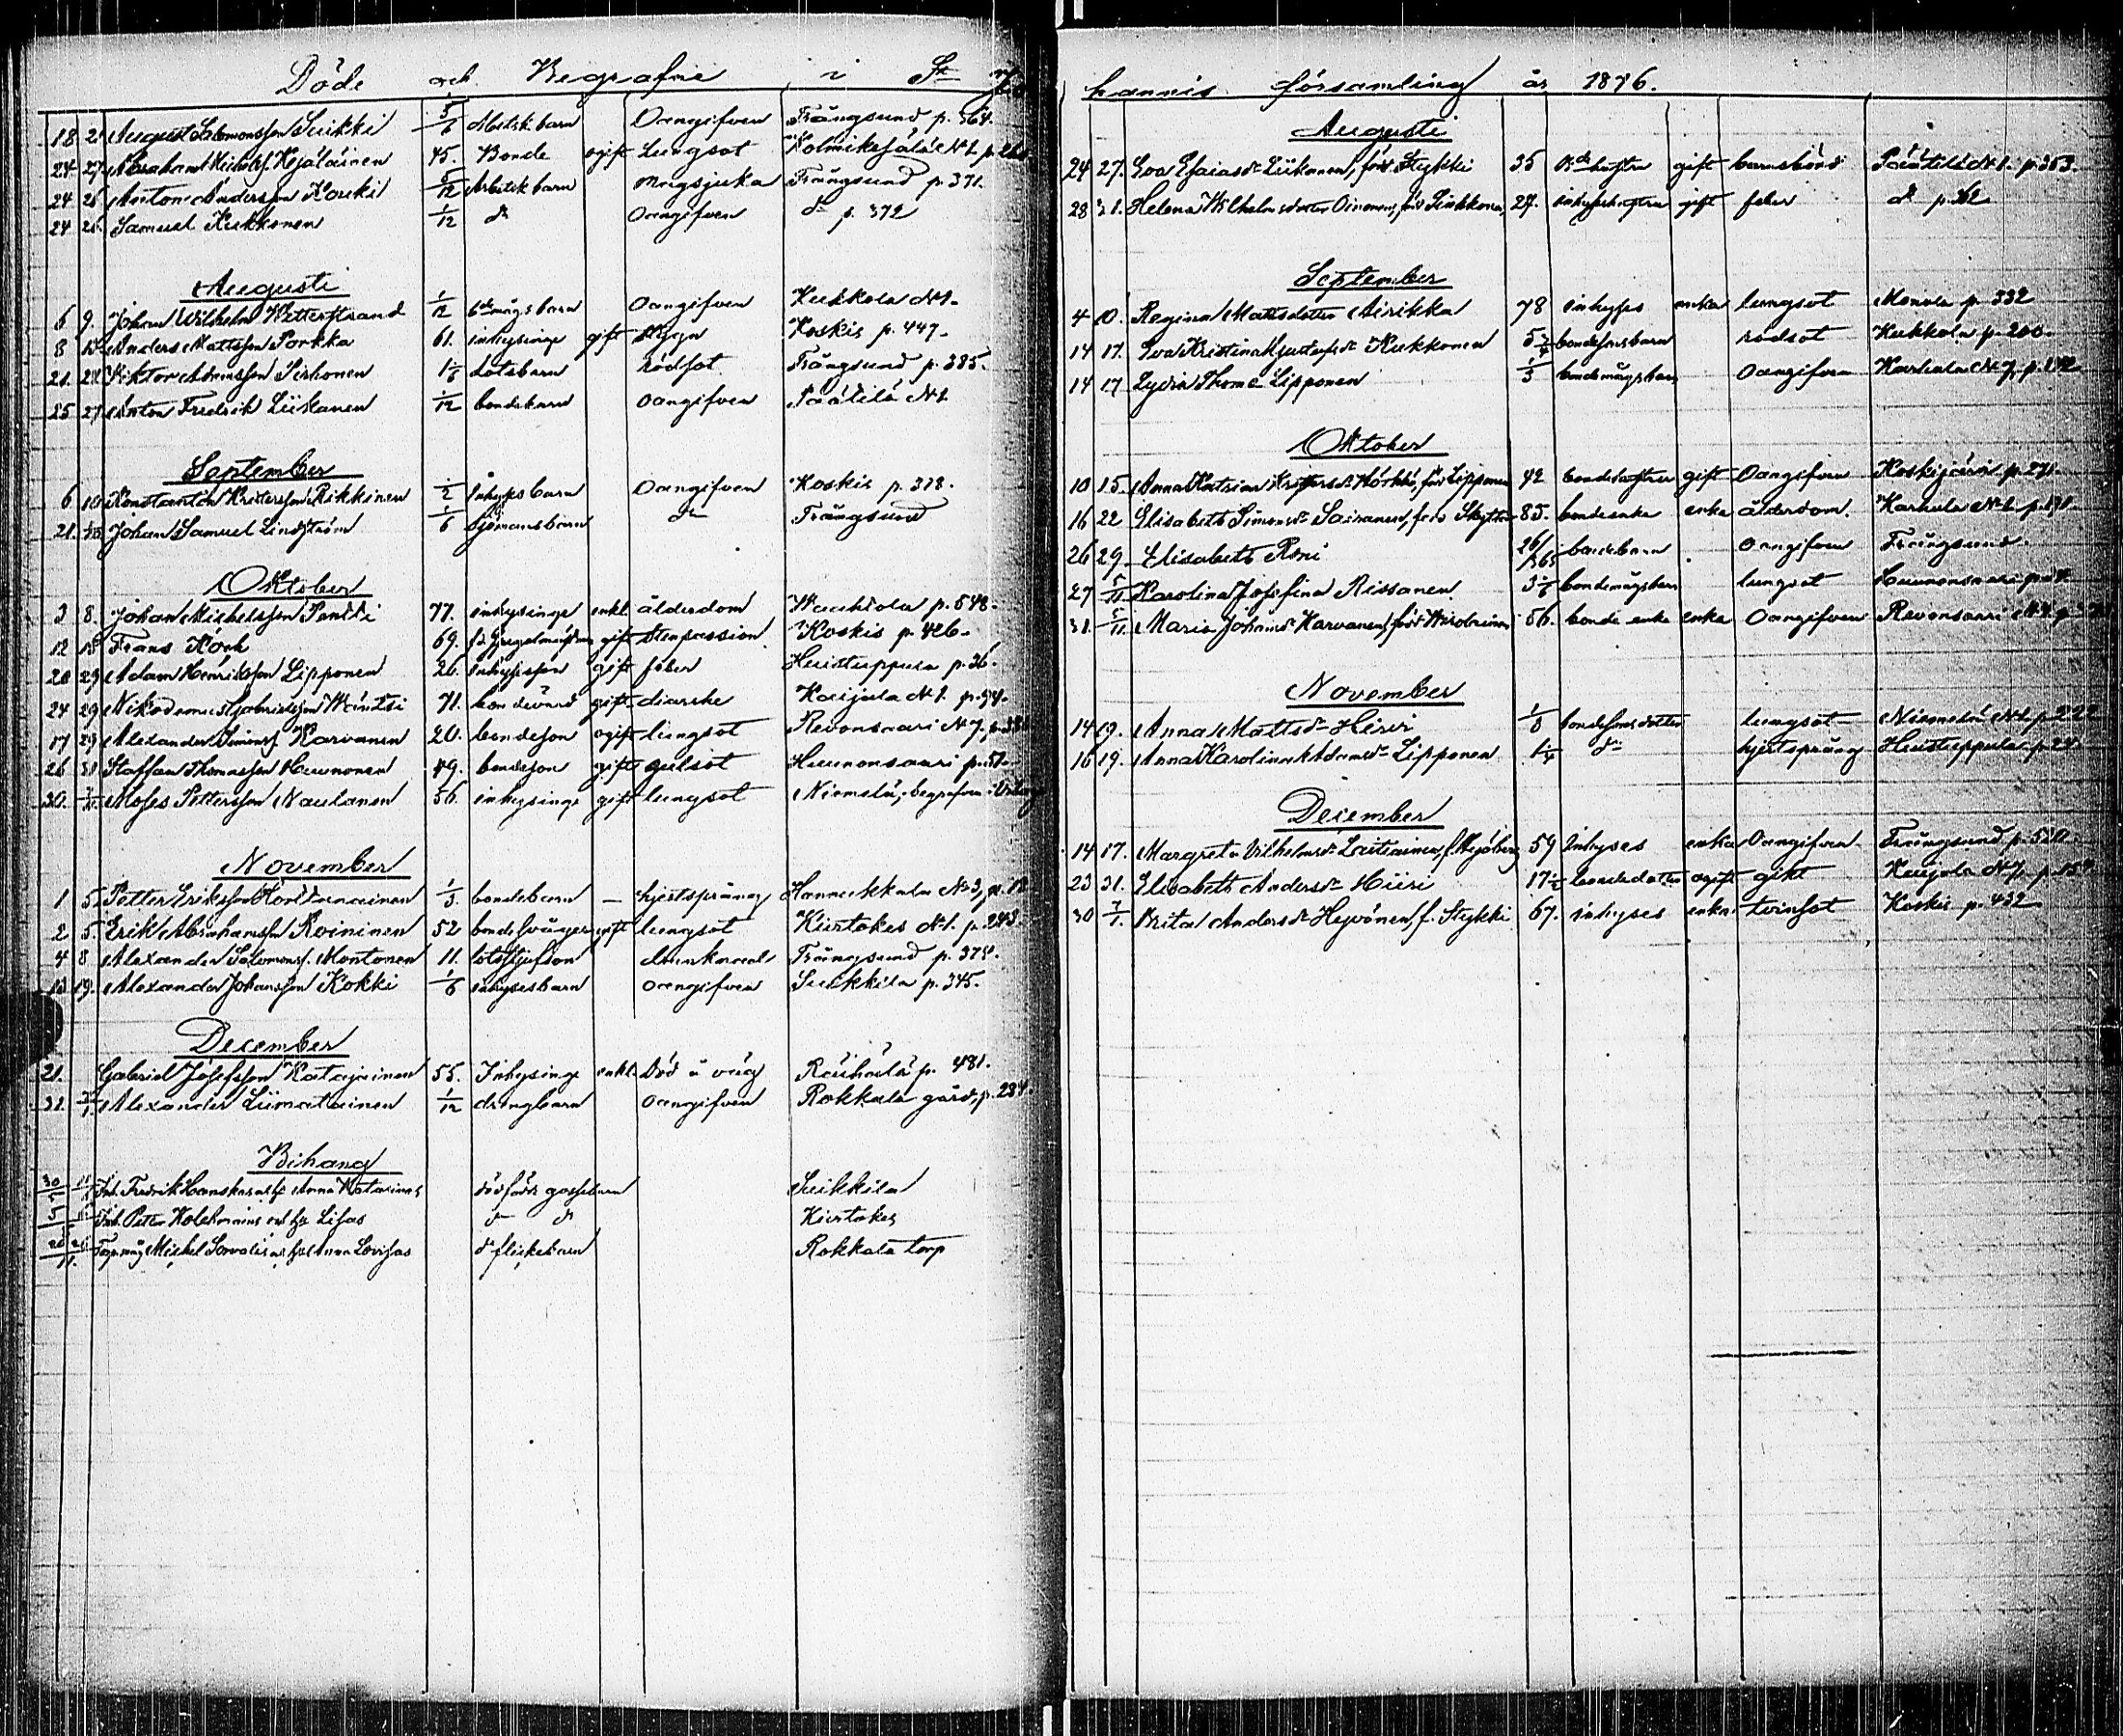 Döde och Begrafne i St Jo
18 2 August Salomonsson Suikki 5/6 Arbetsk barn Oangifven Trångsund p. 364.
24 27 Abraham 45. Bonde ogift Lungsot
24 26 Anton Andersson Kouki 5/12 Arbetsk barn magsjuka Trångsund p. 371.
24 26 Samuel Kukkonen 1/12 do Oangifven do p. 372
Augusti
6 9. Johan Wilhelm Wetterstrand 1/12 bdemågs barn Oangifven Kukkola N1.
8 Anders Mattsson Porkka 61. inhysing gift Koskis p. 447.
21. Viktor Sirkonen 1 1/6 Lotsbarn rödsot Trångsund p. 385.
25 27 Anton Fredrik Liikanen 1/12 bondebarn Oangifven Päätilä N1
September
6 10 Konstantin Rikkinen 1/2 Inhyses barn Oangifven Koskis p. 378.
21. Johan Samuel Lindström 1/6 Sjömansbarn do Trångsund
Oktober
3 8. Johan Michelsson Pentti 77. inhysinge enkl. ålderdom p. 548.
12 15 Frans Hörk 69. gift Stenpassion Koskis p. 426.
20 29 Adam Henriksson Lipponen 26. Inhysesson gift feber Huistuppura p. 36.
24 29 Nikodemus Gabrielsson Wäntsi 71. bondevärd gift diarrhe Kaijala N1. p. 94.
17 29 Alexander Simonss. Karvanen 20. bondeson ogift lungsot Revonsaari N7, p. 381
26 31 Staffan Thomasson Hunnonen 49. bondeson gift gulsot Hunnonsaari p. 57.
30. Moses Pettersson Naulanen 56. inhysinge gift lungsot Niemelä, begrafven i
November
1 5. Petter Eriksson 1/3. bondebarn — hjertsprång Hannukkala No 3, p. 18
2 5. Erik Abrahamsson Roininen 52 bondesvåger gift lungsot Kiurtokes N1. p. 243.
4 8 Alexander Salomonss. Montonen 11. lotsstjufson Trångsund p. 375.
13 19. Alexander Johansson Kokki 1/6 inhysesbarn Oangifven Suikkila p. 345.
December
21. Gabriel Josefsson Katajainen 55. Inhysing enkl. Död å väg Räihälä p. 481.
31. Alexander Liimatainen 1/12 drengbarn Oangifven Rokkala gård, p. 234.
Bihang
30/5 Inh. Fredrik Hanskas o. h. h. Anna Katarinas dödfödt gossebarn Suikkila
Inh. Peter Kolehmains och h. Lisas do do Kiurtokes
26/11. Michel Anna Lovisas do flickebarn Rokkala torp
hannis församling år 1876.
Augusti
24 27. Eva Esaiasdr Liikanen, född Stykki 35 Bdehustru gift barnsbörd Päätilä N1. p. 353.
28 31. Helena Wilhelmsdotter Oinonen, född Sinkkonen, 27. inhyseshustru gift feber do p. 362
September
4 10. Regina Mattsdotter Airikka 78 inhyses enka lungsot Monola p. 332
14 17. Eva Kristina Gustafsdr Kukkonen 5 3/4 bondesonsbarn rödsot Kukkola p. 200.
14 17 Lydia Thoms Lipponen 1/3 bondemågsbarn Oangifven Karhula N7, p.
Oktober
10 15. Anna Katrina född Lipponen 42 bondehustru gift Oangifven Koskijärvi p. 271.
16 22 Elisabeth Simonsdr Sairanen, född Skyttä 85. bondeenka enka ålderdom. Karhula N1. p. 171.
26 29. Elisabeth Roni 26/365 bondebarn Oangifven Trångsund.
27 5/11. Karolina Josefina Rissanen 3 1/2 bondemågsbarn lungsot Hunnonsaari
31. 5/11. Maria Johansdr Karvanen, född Wirolainen 56. bonde enka enka Oangifven Revonsaari
November
14 19. Anna Mattsdr Hiiri 1/8 bondesonsdotter lungsot Niemelä N1. p. 222
16 19. Anna Karolina Adamsdr Lipponen 1 1/4 do hjertsprång Huistuppula p. 24
December
14 17. Margreta Vilhelmsdr Lautiainen, f. Sjöberg 59 Inhyses enka Oangifven Trångsund p. 520.
23 31. Elisabeth Andersdr Hiiri 17 1/2 bondedotter ogift gikt Kaijala N7, p. 154
30 7/1. Brita Andersdr Heyvönen, f. Stykki 67. inhyses enka tvinsot Koskis p. 432